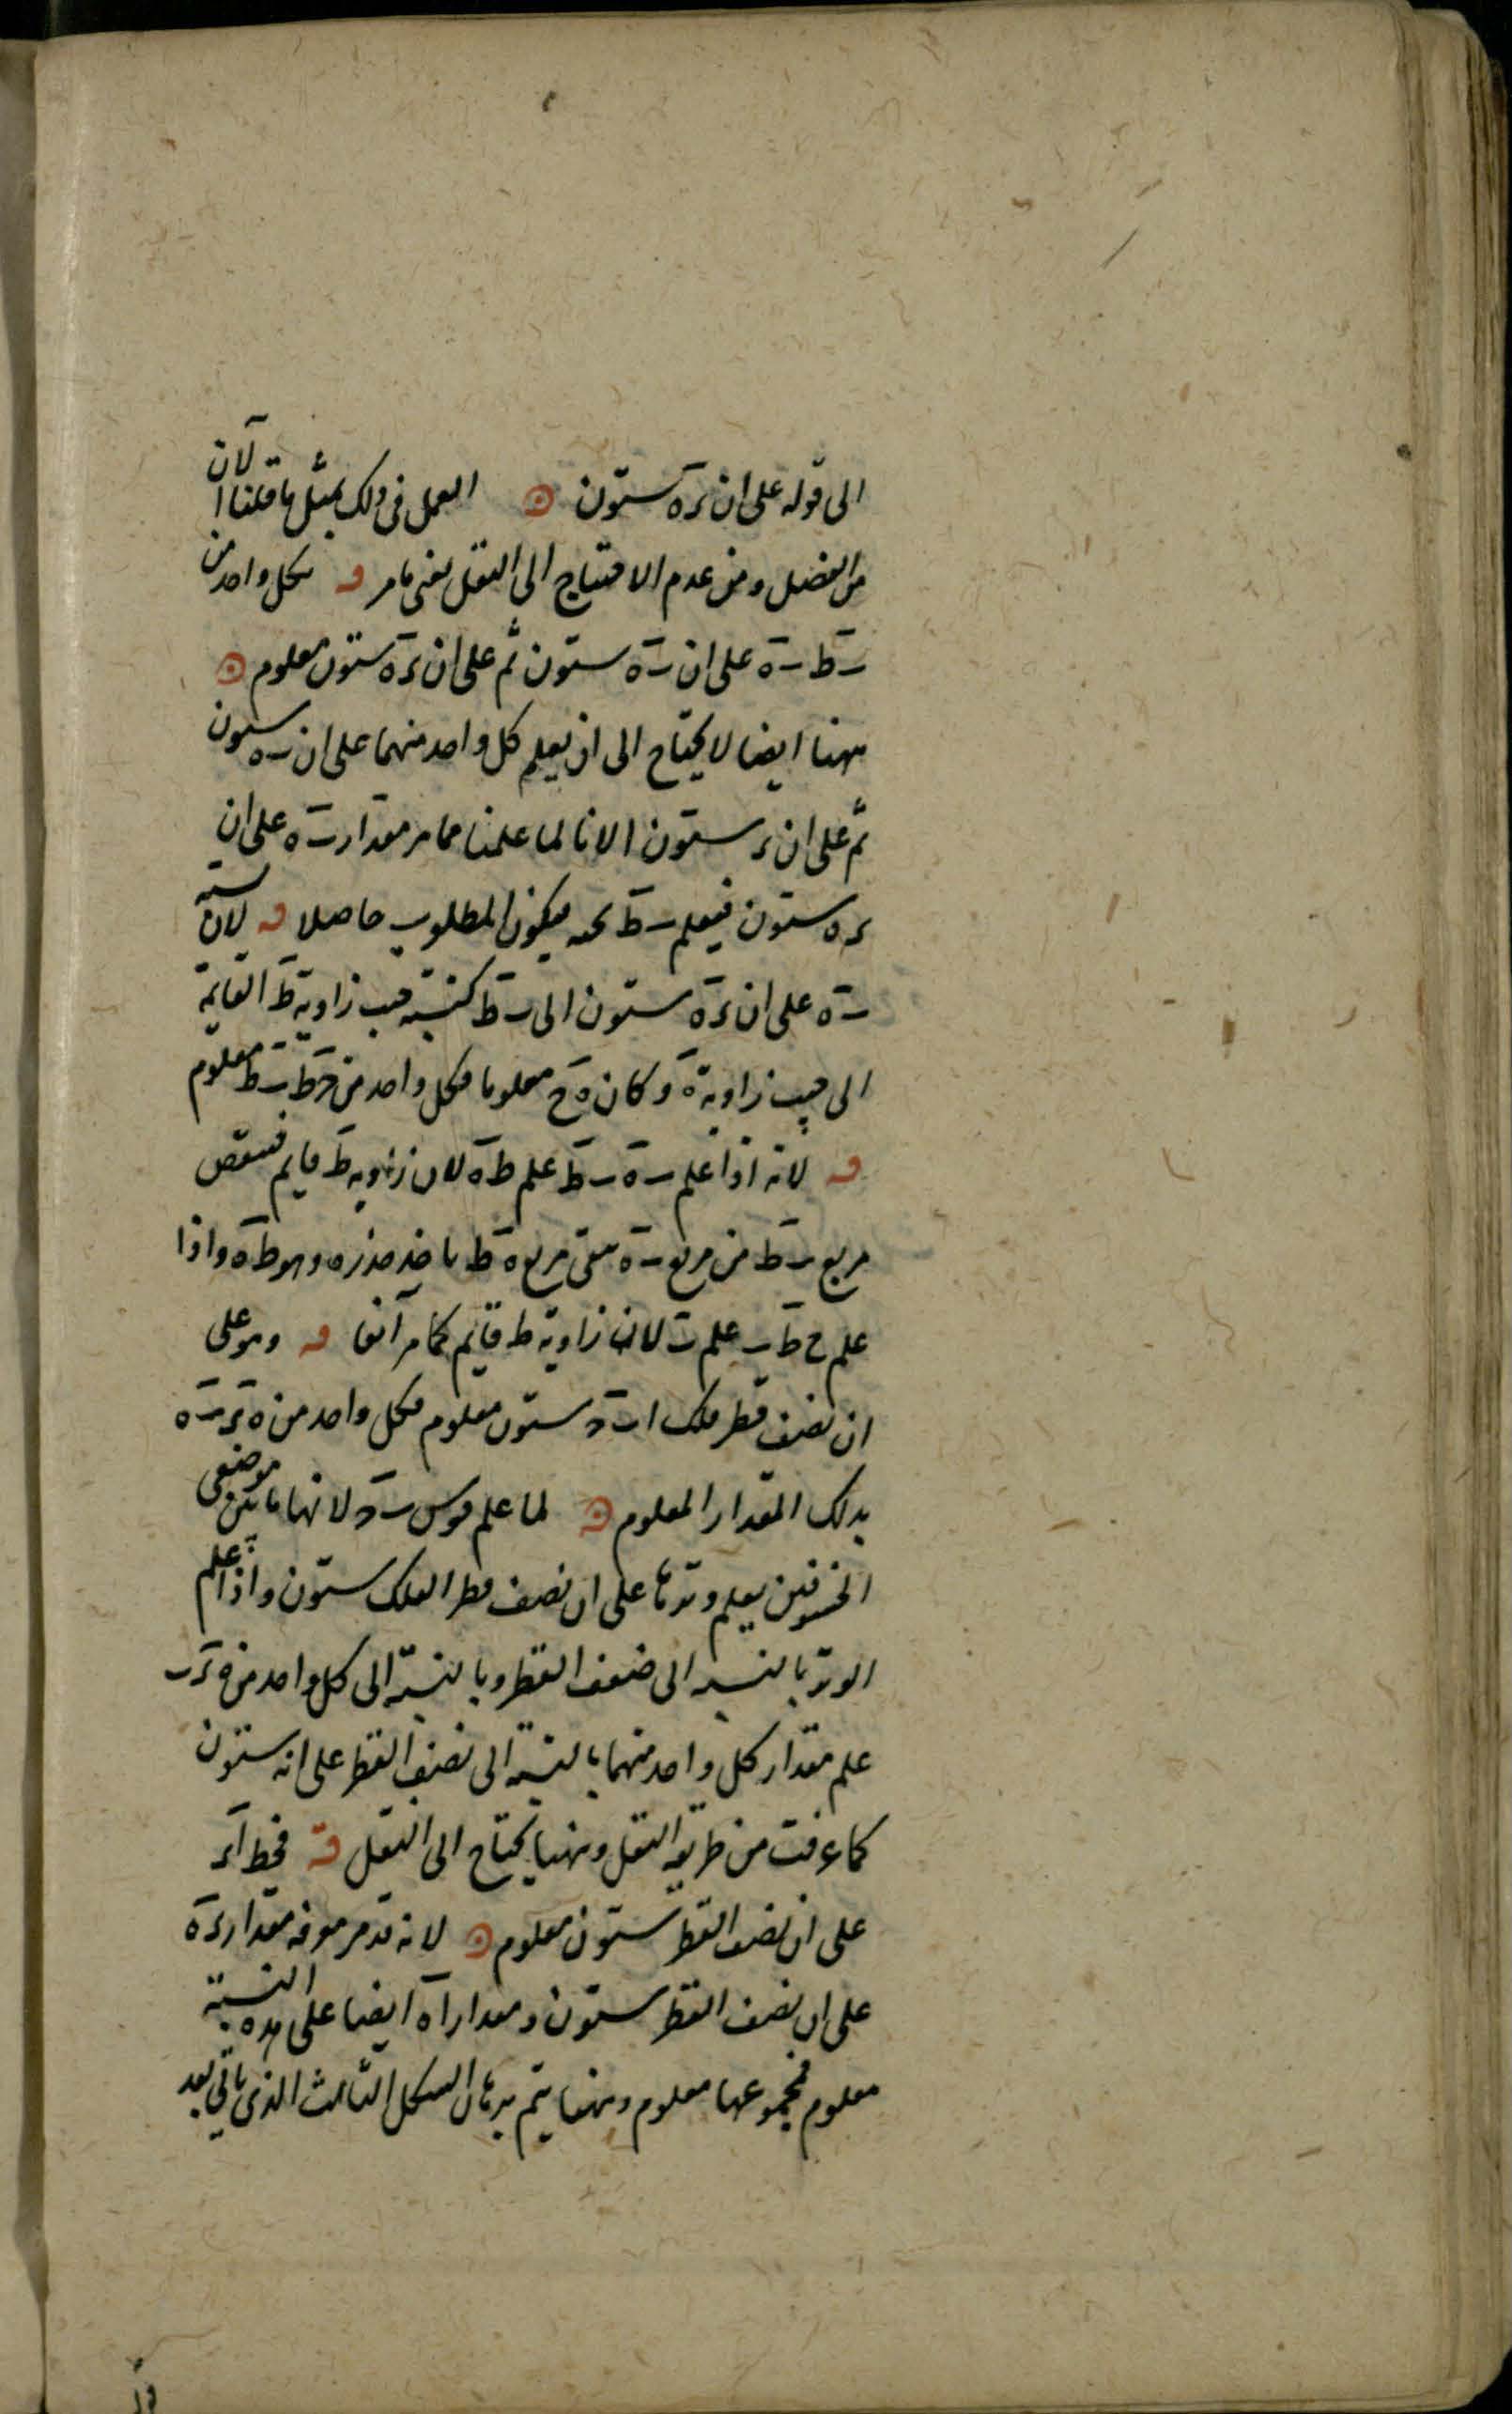 الى قوله على ان ىره ستون العمل فى ذلك بمثل ما قلنا الآن
من الفضل ومن عدم الاحتياج الى النقل يفى بما مر فه فكل واحد من
ٮط ٮه على ان ٮه ستون ثم على ان ىره ستون معلوم
ههنا ايضا لا يحتاج الى ان يعلم كل واحد منهما على ان ٮه ستون
ثم على ان ىر ستون الا انا لما علمنا مما مر مقدار ٮه على ان
ىره ستون فيعلم ٮط فيكون المطلوب حاصلا فه لان نسبة
ٮه على ان ىره ستون الى ٮط كنسبة جيب زاوية ط القايمة
الى جيب زاوية ه وكان ه ح معلوما فكل واحد من حط ٮط معلوم
فه لانه اذا علم ٮه ٮط علم طه لان زاوية ط قايم فينقص
مربع ٮط من مربع ٮه يبقى مربع ه ط ياخذ جذره وهو طه واذا
علم ح ط ٮ علم ٮ لان زاوية ط قايم كما مر آنفا فه وهو على
ان نصف قطر فلك اٮد ستون معلوم فكل واحد من ه ىر ٮه
بذلك المقدار المعلوم فه لما علم قوس ٮد لانها ما بين موضعى
الخسوفين يعلم وترها على ان نصف قطر الفلك ستون واذا علم
الوتر بالنسبة الى ضعف القطر وبالنسبة الى كل واحد من ه ىر ٮ
علم مقدار كل واحد منهما بالنسبة الى نصف القطر على انه ستون
كما عرفت من طريقة النقل وههنا يحتاج الى النقل فه فخط اىر
على ان نصف القطر ستون معلوم لانه قد مر معرفة مقدار ىره
على ان نصف القطر ستون ومقدار اه ايضا على هذه النسبة
معلوم فمجموعهما معلوم وههنا يتم برهان الشكل الثالث الذى ياتى بعد